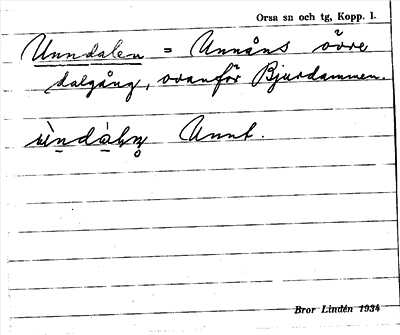 Orsa sn och tg, Kopp. l.
Unndalen = Unnåns övre
dalgång, ovanför Bjurdammen.
Unnt.
Bror Lindén 1934